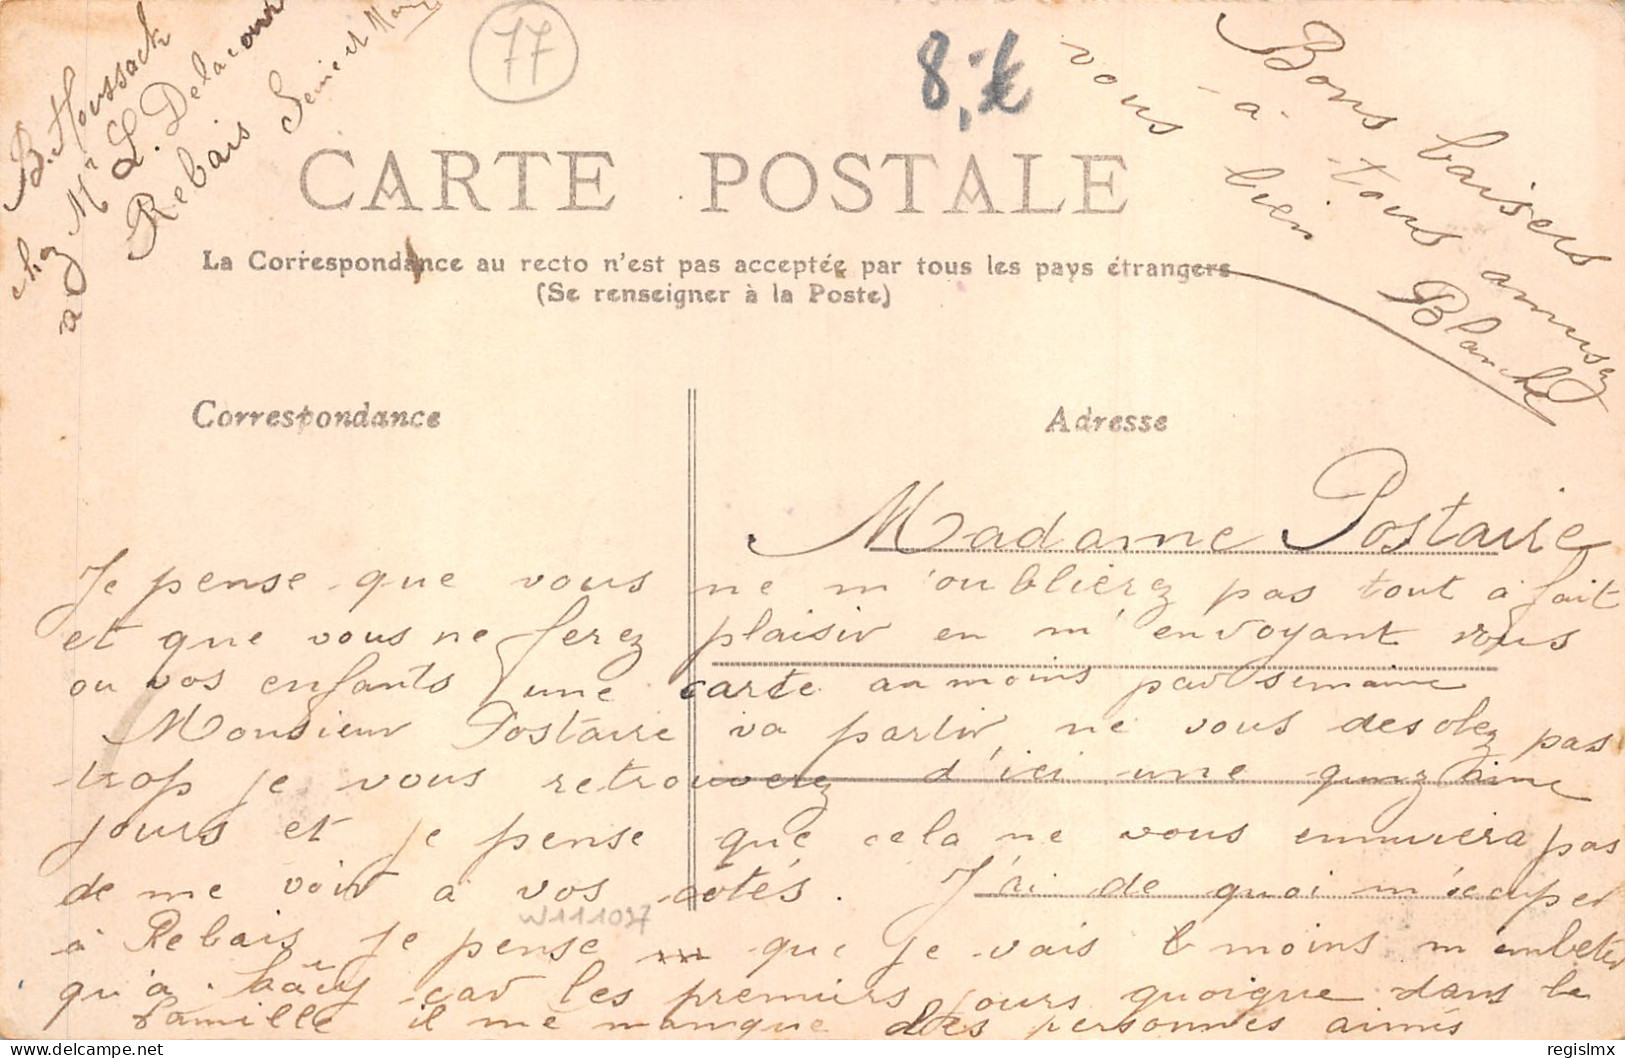 B. Houssack
chez Mr L. Delacour
à Rebais Seine et Marne
77
8,-€
Bons baisers
à tous amusez
vous bien
Blanche
CARTE POSTALE
La Correspondance au recto n'est pas acceptée par tous les pays étrangers
(Se renseigner à la Poste)
Correspondance
Adresse
Madame Postaire
Je pense que vous ne m'oublierez pas tout à fait
et que vous ne ferez plaisir en m'envoyant vous
ou vos enfants une carte au moins par semaine
Monsieur Postaire va partir, ne vous desolez pas
trop je vous retrouverez d'ici une quinzaine
jours et je pense que cela ne vous ennuiera pas
de me voir à vos côtés. J'ai de quoi m'occuper
à Rebais je pense que je vais moins m'embeter
qu'à car les premiers jours quoique dans la
famille il me manque des personnes aimés
W111037
delcampe.net
regislmx